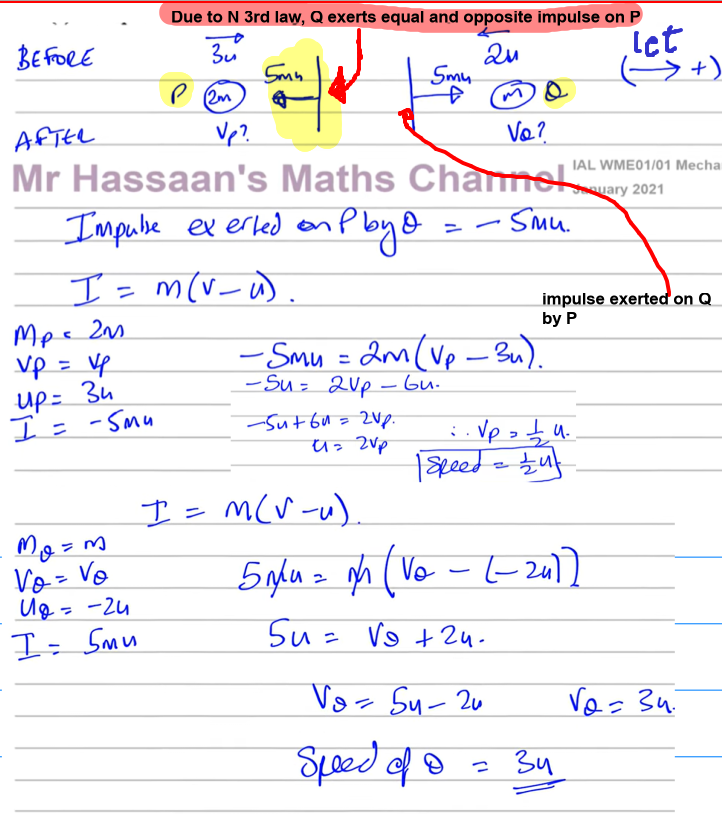 Due to N 3rd law, Q exerts equal and opposite impulse on P
BEFORE 3u 2u let
P 2m 5mu 5mu m Q (→ +)
AFTER Vp? VQ?
Mr Hassaan's Maths Channel IAL WME01/01 Mecha
January 2021
Impulse exerted on P by Q = - 5mu.
I = m(v-u).
impulse exerted on Q
by P
Mp = 2m
Vp = Vp
up = 3u
I = -5mu
-5mu = 2m(Vp - 3u).
-5u = 2Vp - 6u.
-5u+6u = 2Vp.
u = 2Vp
∴ Vp = 1/2 u.
Speed = 1/2 u
I = m(v-u).
MQ = m
VQ = VQ
uQ = -2u
I = 5mu
5mu = m(VQ - (-2u))
5u = VQ + 2u.
VQ = 5u - 2u VQ = 3u.
Speed of Q = 3u